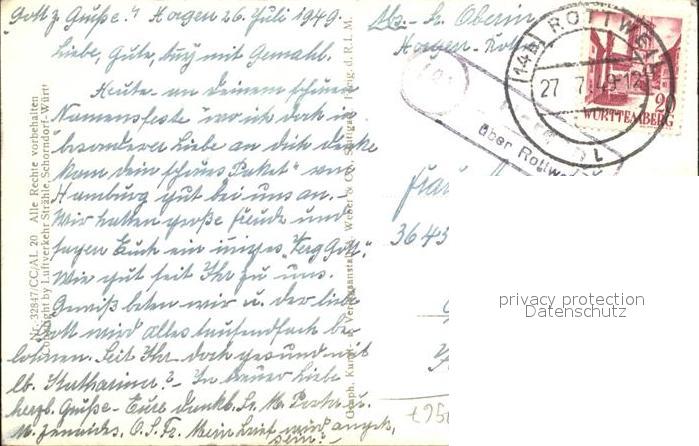 "Gott z. Gruße." Horgen 26. Juli 1949.
Liebe, Gute, mit Gemahl.
Heute an Deinem schönen
Namensfeste wo ich doch in
besonderer Liebe an dich denke
kam dein schönes Paket von
Hamburg gut bei uns an.
Wir hatten große Freude und
sagen Euch ein inniges "Verg. Gott."
Wie gut seit Ihr zu uns.
Gewiß beten wir u. der liebe
Gott wird alles tausendfach be-
lohnen. Seit Ihr doch gesund mit
lb. Katharina? - In treuer Liebe
herzl. Grüße - Eure dankb. Sr. M.
M. O.S.Fr. Mein wird
sein!
Nr. 32847/CC/AL 20 Alle Rechte vorbehalten
Copyright by Luftverkehr Strähle, Schorndorf-Württ.
Graph. Kunst- u. Verlagsanstalt Weber & Co., Stuttgart D.R.I.M.
Abs. Sr. Oberin
Horgen
(14b) ROTTWEIL
27. 7. 49-12
20
WÜRTTEMBERG
über Rottweil
Frau
3643
privacy protection
Datenschutz